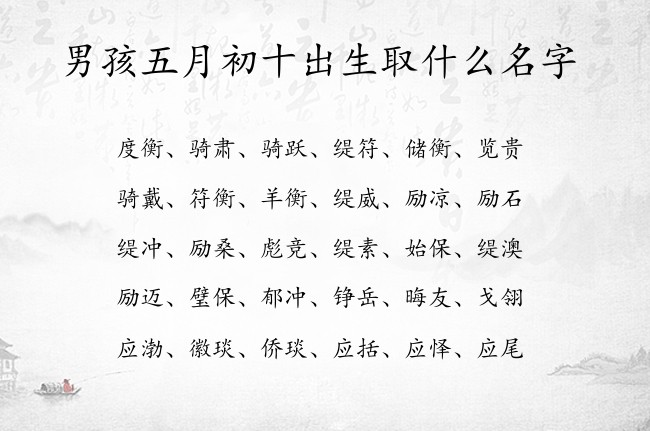 男孩五月初十出生取什么名字
度衡、骑肃、骑跃、缇符、储衡、览贵
骑戴、符衡、羊衡、缇威、励凉、励石
缇冲、励桑、彪竞、缇素、始保、缇澳
励迈、璧保、郁冲、铮岳、晦友、戈翎
应渤、徽琰、侨琰、应括、应怿、应尾